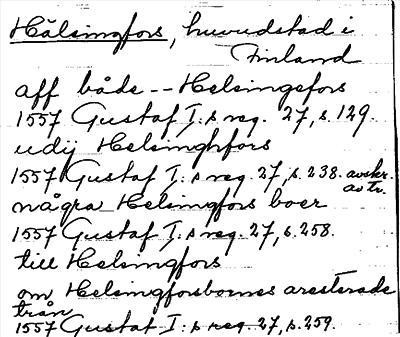 Hälsingfors, huvudstad i
Finland
aff både -- Helsingefors
1557 Gustaf I:s reg. 27, s. 129.
udij Helsinghfors
1557 Gustaf I:s reg. 27, s. 238. avskr.
av tr.
några Helsingfors boer
1557 Gustaf I:s reg. 27, s. 258.
till Helsingfors
om Helsingforsbornes aresterade
trån
1557 Gustaf I:s reg. 27, s. 259.